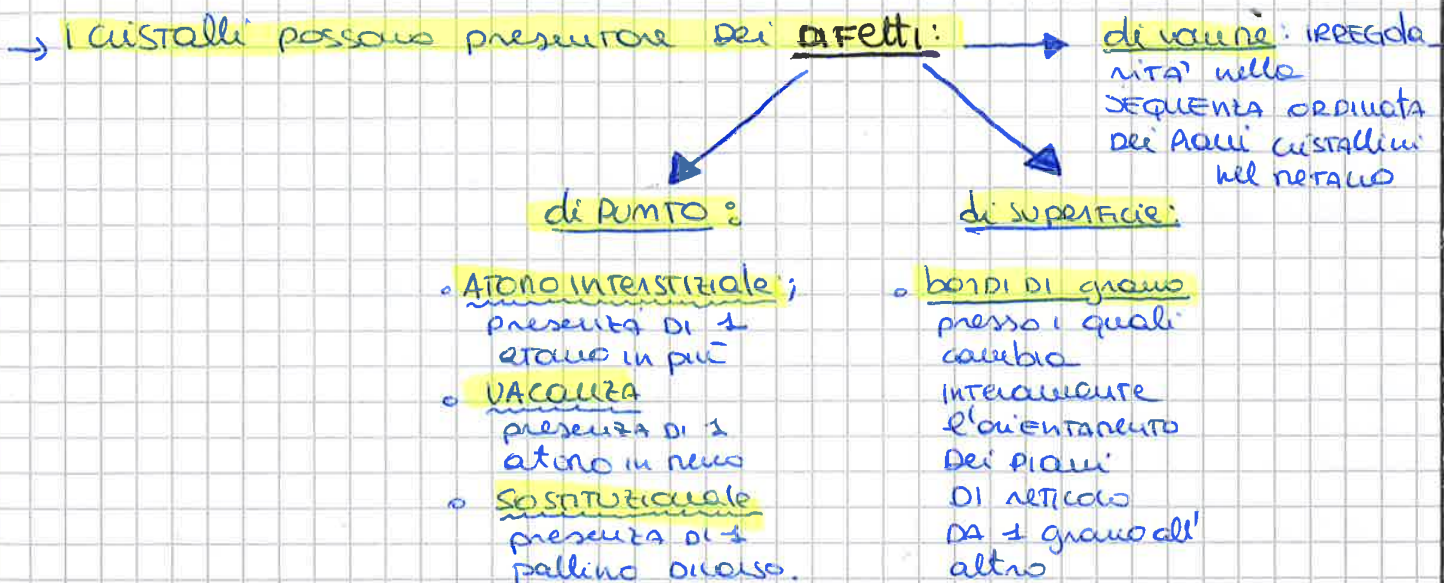 → I cristalli possono presentare dei DIFETTI: → di : IRREGOLA
RITA' nella
SEQUENZA ORDINATA
DEI PIANI CRISTALLINI
NEL METALLO
di PUNTO:
• ATOMO INTERSTIZIALE;
presenza DI 1
atomo in più
• VACANZA
presenza DI 1
atomo in meno
• SOSTITUZIONALE
presenza DI 1
pallino DIVERSO.
di SUPERFICIE:
• BORDI DI grano
presso i quali
cambia
INTERAMENTE
l'ORIENTAMENTO
Dei PIANI
DI RETICOLO
DA 1 grano all'
altro